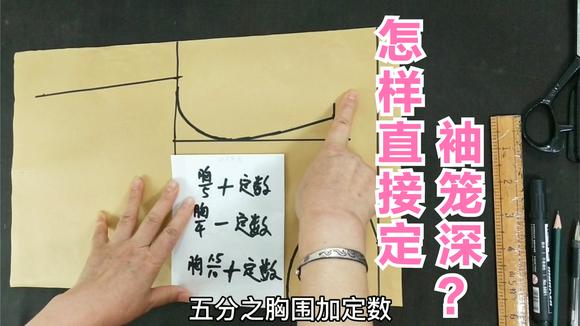 怎样直接定
袖笼深?
胸/5+定数
胸/4-定数
胸1.5/10+定数
五分之胸围加定数